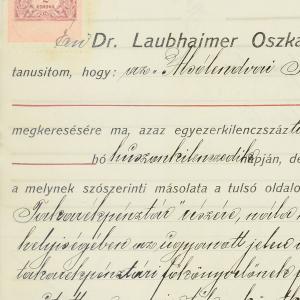 Én Dr. Laubhaimer Oszká
tanusitom, hogy: az Alsólendvai
megkeresésére ma, azaz egyezerkilenczszáz
bó huszonkilenczedik napján, de
a melynek szószerinti másolata a tulsó oldalo
Takarékpénztár részére, nála
helyiségében az ugyanott jelen
takarékpénztári főkönyvelőnek